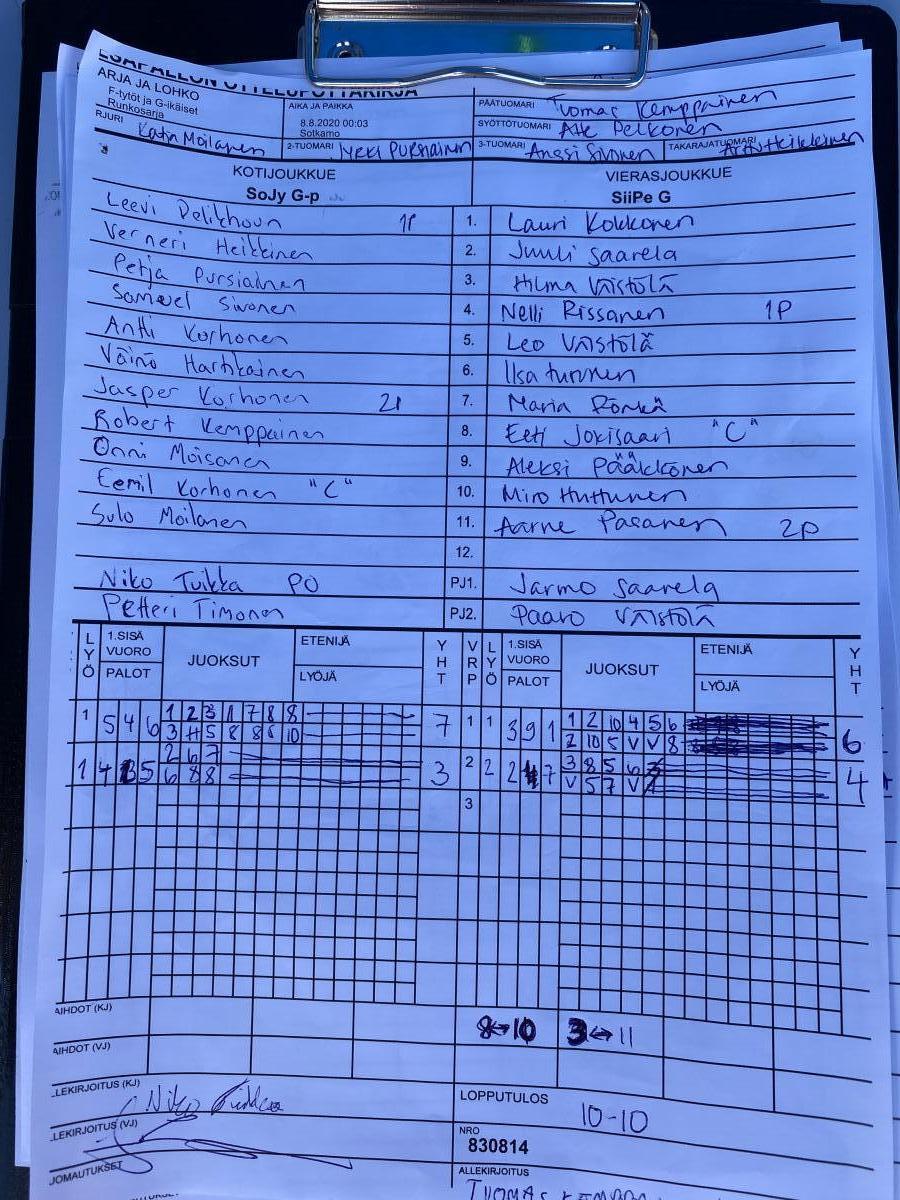 ARJA JA LOHKO
F-tytöt ja G-ikäiset
Runkosarja
AIKA JA PAIKKA
8.8.2020 00:03
Sotkamo
PÄÄTUOMARI Tuomas Kemppainen
SYÖTTÖTUOMARI Atte Pelkonen
RJURI Katja Moilanen 2-TUOMARI Jyrki Pursiainen 3-TUOMARI Anssi Sivonen TAKARAJATUOMARI Arttu Heikkinen
KOTIJOUKKUE VIERASJOUKKUE
SoJy G-p SiiPe G
Leevi 1P 1. Lauri Kokkonen
Verneri Heikkinen 2. Juuli Saarela
Petja Pursiainen 3. Hilma Väistölä
Samuel Sivonen 4. Nelli Rissanen 1P
Antti Korhonen 5. Leo Väistölä
Väinö Hartikainen 6. Ilsa Turunen
Jasper Korhonen 7. Maria Rönkä
Robert Kemppainen 8. Eeti Jokisaari "C"
Onni Moisanen 9. Aleksi Pääkkönen
Eemil Korhonen "C" 10. Miro Huttunen
Sulo Moilanen 11. Aarne Pasanen 2P
12.
Niko Tuikka PO PJ1. Jarmo Saarela
Petteri Timonen PJ2. Paavo Väistölä
LYÖ 1.SISÄ VUORO PALOT JUOKSUT ETENIJÄ LYÖJÄ YHT VRP LYÖ 1.SISÄ VUORO PALOT JUOKSUT ETENIJÄ LYÖJÄ YHT
1 5 4 6 1 2 3 1 7 8 8 7 1 1 3 9 1 1 2 10 4 5 6 6
3 H 5 8 8 8 10 2 10 5 V V 8
1 4 5 2 6 7 3 2 2 2 7 3 8 5 6 4
6 8 8 V 5 7 V
3
AIHDOT (KJ) 8↔10 3↔11
AIHDOT (VJ)
LEKIRJOITUS (KJ) Niko Tuikka
LOPPUTULOS 10-10
LEKIRJOITUS (VJ)
NRO
830814
JOMAUTUKSET
ALLEKIRJOITUS